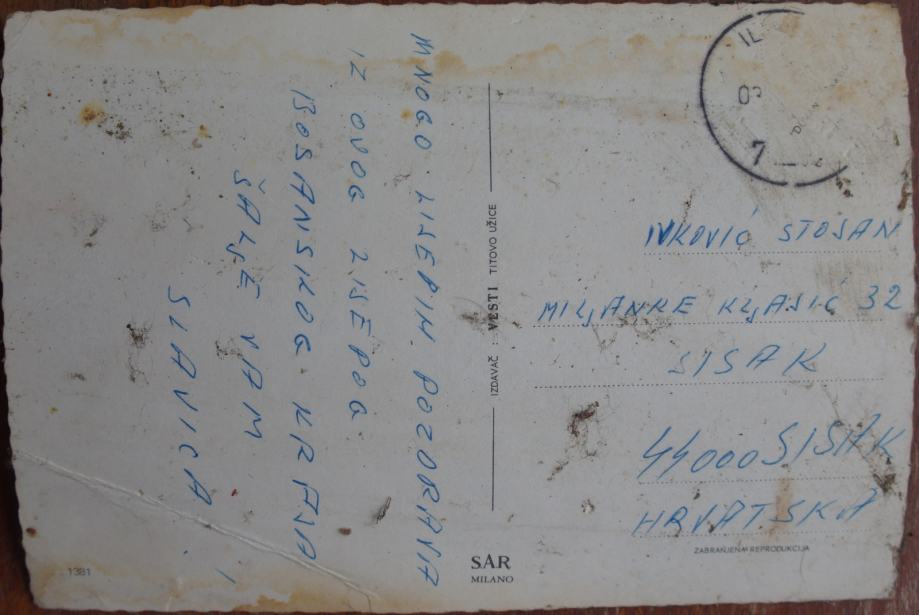 MNOGO LIJEPIH POZDRAVA
IZ OVOG LIJEPOG
BOSANSKOG KRAJA
ŠALJE VAM
SLAVICA.
IZDAVAČ : VESTI TITOVO UŽICE
IVKOVIĆ STOJAN
MILJANKE KLJAJIĆ 32
SISAK
44000 SISAK
HRVATSKA
ZABRANJENA REPRODUKCIJA
SAR
MILANO
1381